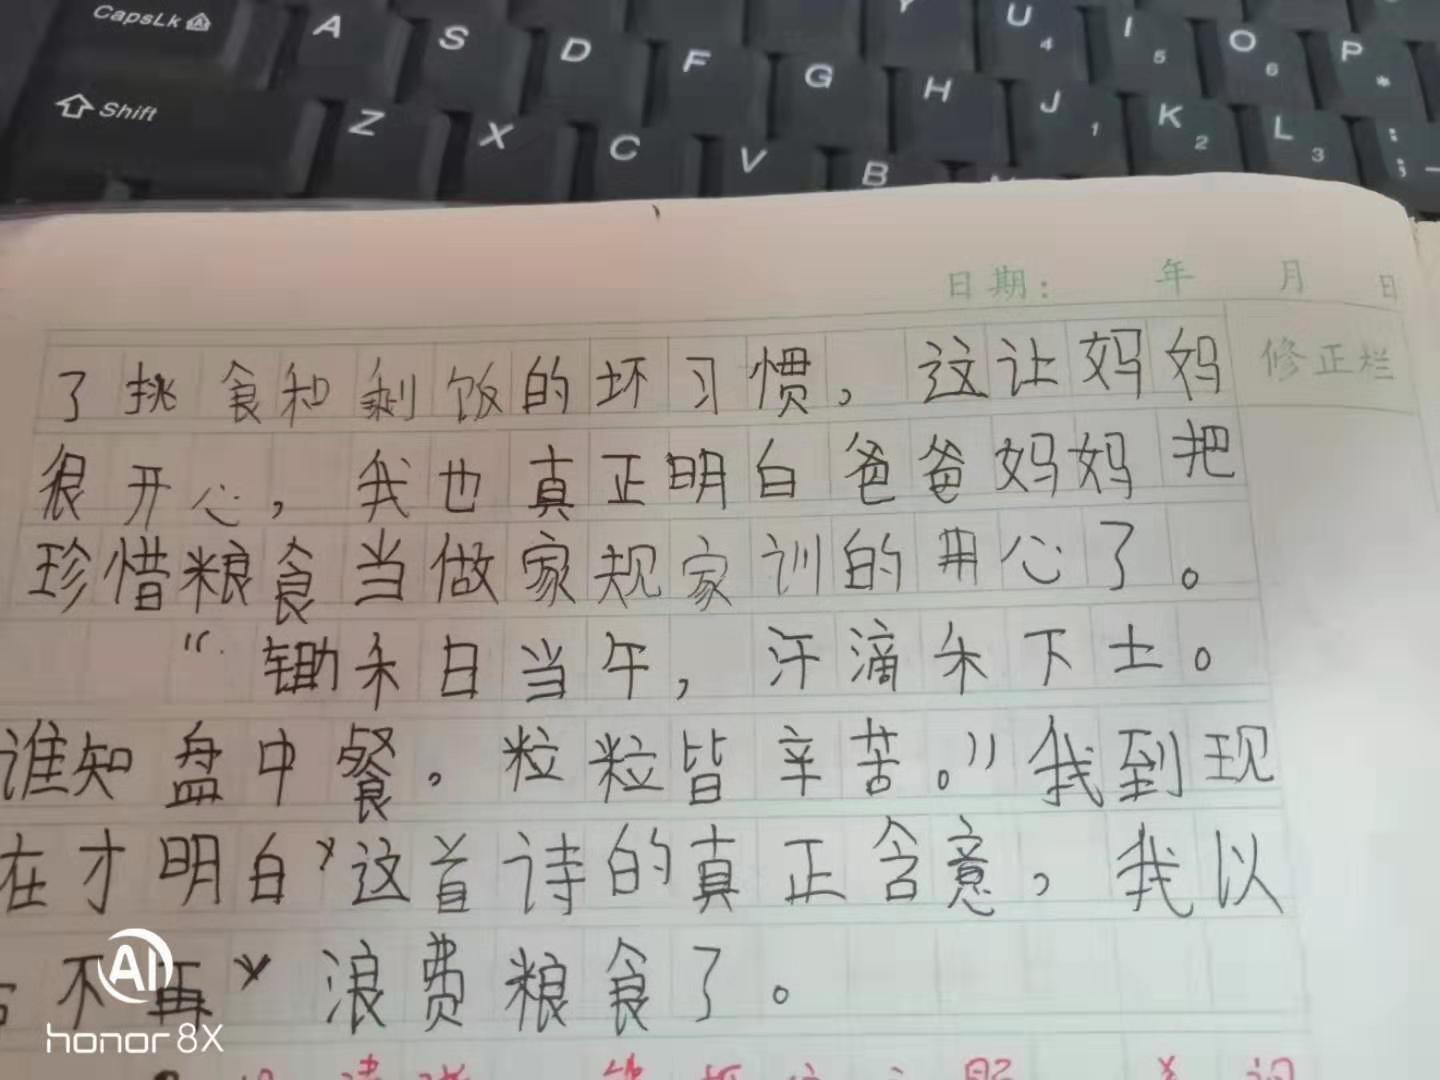 CapsLk A S D F G H J 1 K 2 L 3 : ;
U 4 I 5 O 6 P *
Shift Z X C V B
日期: 年 月 日
修正栏
了挑食和剩饭的坏习惯，这让妈妈
很开心，我也真正明白爸爸妈妈把
珍惜粮食当做家规家训的用心了。
“锄禾日当午，汗滴禾下土。
谁知盘中餐。粒粒皆辛苦。”我到现
在才明白这首诗的真正含意，我以
不再浪费粮食了。
AI
honor 8X